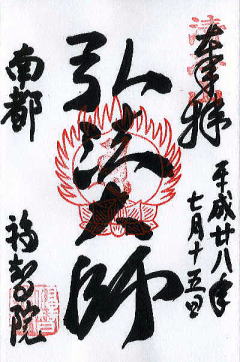 奉拝
平成廿八年
七月十五日
弘法大師
南都
福智院